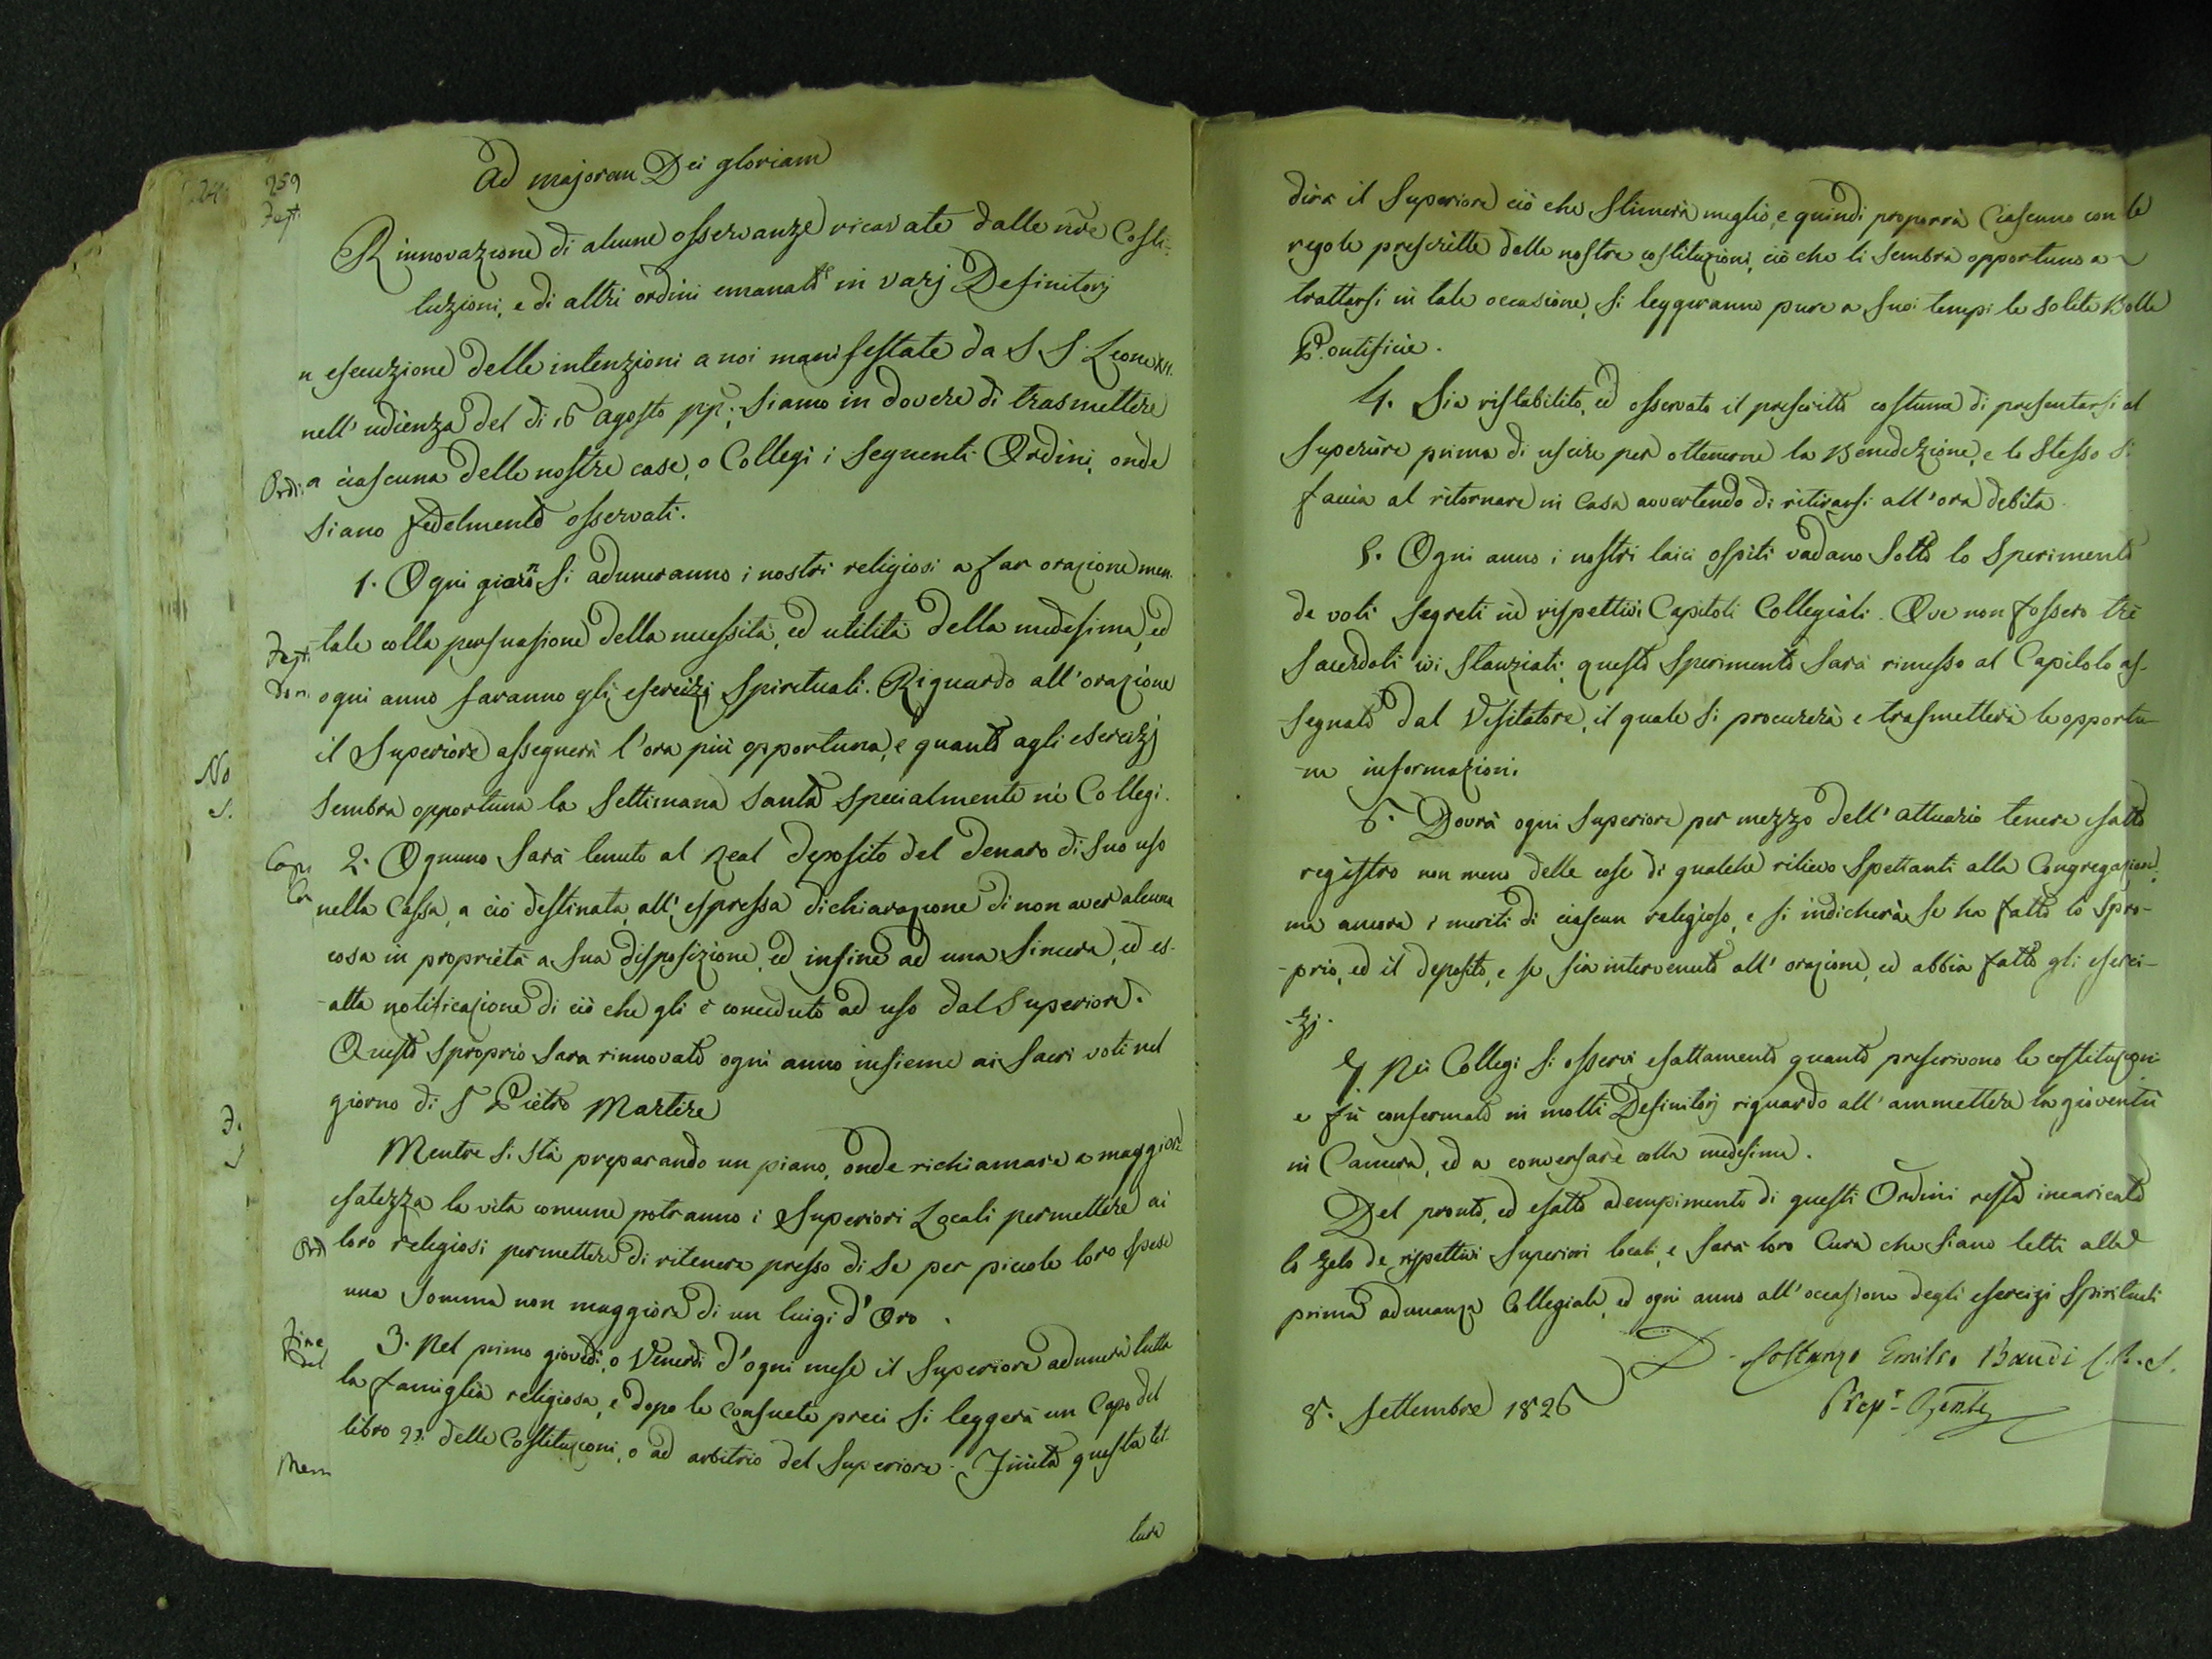 Ad majorem Dei gloriam
Rinnovazione di alcune osservanze ricavate dalle nře Costi-
tuzioni, e di altri ordini emanati in varj Definitorj
n esecuzione delle intenzioni a noi manifestate da S S. Leone XII.
nell' udienza del di 16 Agosto pp: siamo in dovere di trasmettere
a ciascuna delle nostre case, o Collegi i seguenti Ordini, onde
siano fedelmente osservati.
1. Ogni giorno si aduneranno i nostri religiosi a far orazione men-
tale colla persuasione della necessità, ed utilità della medesima, ed
ogni anno faranno gli esercizj Spirituali. Riguardo all' orazione
il Superiore assegnerà l'ora più opportuna, e quanto agli esercizj
sembra opportuna la Settimana Santa specialmente ne Collegi.
2. Ognuno sarà tenuto al Real deposito del Denaro di suo uso
nella Cassa, a ciò destinata, all' espressa dichiarazione di non aver alcuna
cosa in proprietà a sua disposizione, ed insine ad una sincera, ed es-
-atta notificazione di ciò che gli è conceduto ad uso dal Superiore.
Questo sproprio sara rinnovato ogni anno insieme ai sacri voti nel
giorno di S Pietro Martire
Mentre si stà preparando un piano, onde richiamare a maggiore
esatezza la vita comune potranno i Superiori Locali permettere ai
loro religiosi permettere di ritenere presso di se per piccole loro spese
una somma non maggiore di un luigi d'Oro.
3. Nel primo giovedì, o Venerdì d'ogni mese il Superiore adunerà tutta
la famiglia religiosa, e dopo le consuete preci si leggerà un Capo del
libro 2º: delle Costituzioni, o ad arbitrio del Superiore. Finita questa let-
tura
dirà il Superiore ciò che stimerà meglio, e quindi proporrà Ciascuno con le
regole prescritte dalle nostre costituzioni, ciò che li sembra opportuno a
trattarsi in tale occasione, si leggeranno pure a suoi tempi le solite Bolle
Pontificie.
4. Sia ristabilito, ed osservato il prescritto costume di presentarsi al
Superiore prima di uscire per ottenerne la Benedizione, e lo stesso si
faccia al ritornare in Casa avvertendo di ritirarsi all'ora debita.
5. Ogni anno i nostri laici ospiti vadano sotto lo Sperimento
de voti segreti ne rispettivi Capitoli Collegiali. Ove non fossero tre
Sacerdoti ivi stanziati, questo sperimento sarà rimesso al Capitolo as-
-segnato dal Visitatore, il quale si procurerà e trasmetterà le opportu-
-ne informazioni.
6. Dovrà ogni Superiore per mezzo dell' Attuario tenere esatto
registro non meno delle cose di qualche rilievo spettanti alla Congregazione,
ma ancora i meriti di ciascun religioso, e si indicherà se ha fatto lo spro-
-prio, ed il deposito, e se sia intervenuto all' orazione, ed abbia fatto gli eserci-
-zj.
7. Nei Collegi si osservi esattamente quanto prescrivono le costituzioni
e fù confermato in molti Definitorj riguardo all' ammettere la gioventù
in Camera, ed a conversare colla medesima.
Del pronto, ed esatto adempimento di questi Ordini resta incaricato
lo zelo de rispettivi Superiori locali, e sarà loro Cura che siano letti alla
prima adunanza Collegiale, ed ogni anno all' occasione degli esercizi Spirituali
D. Costanzo Emilio Baudi C.R.S.
8. Settembre 1826
259
Ordi:
No
Ord
Fine
del
Mem